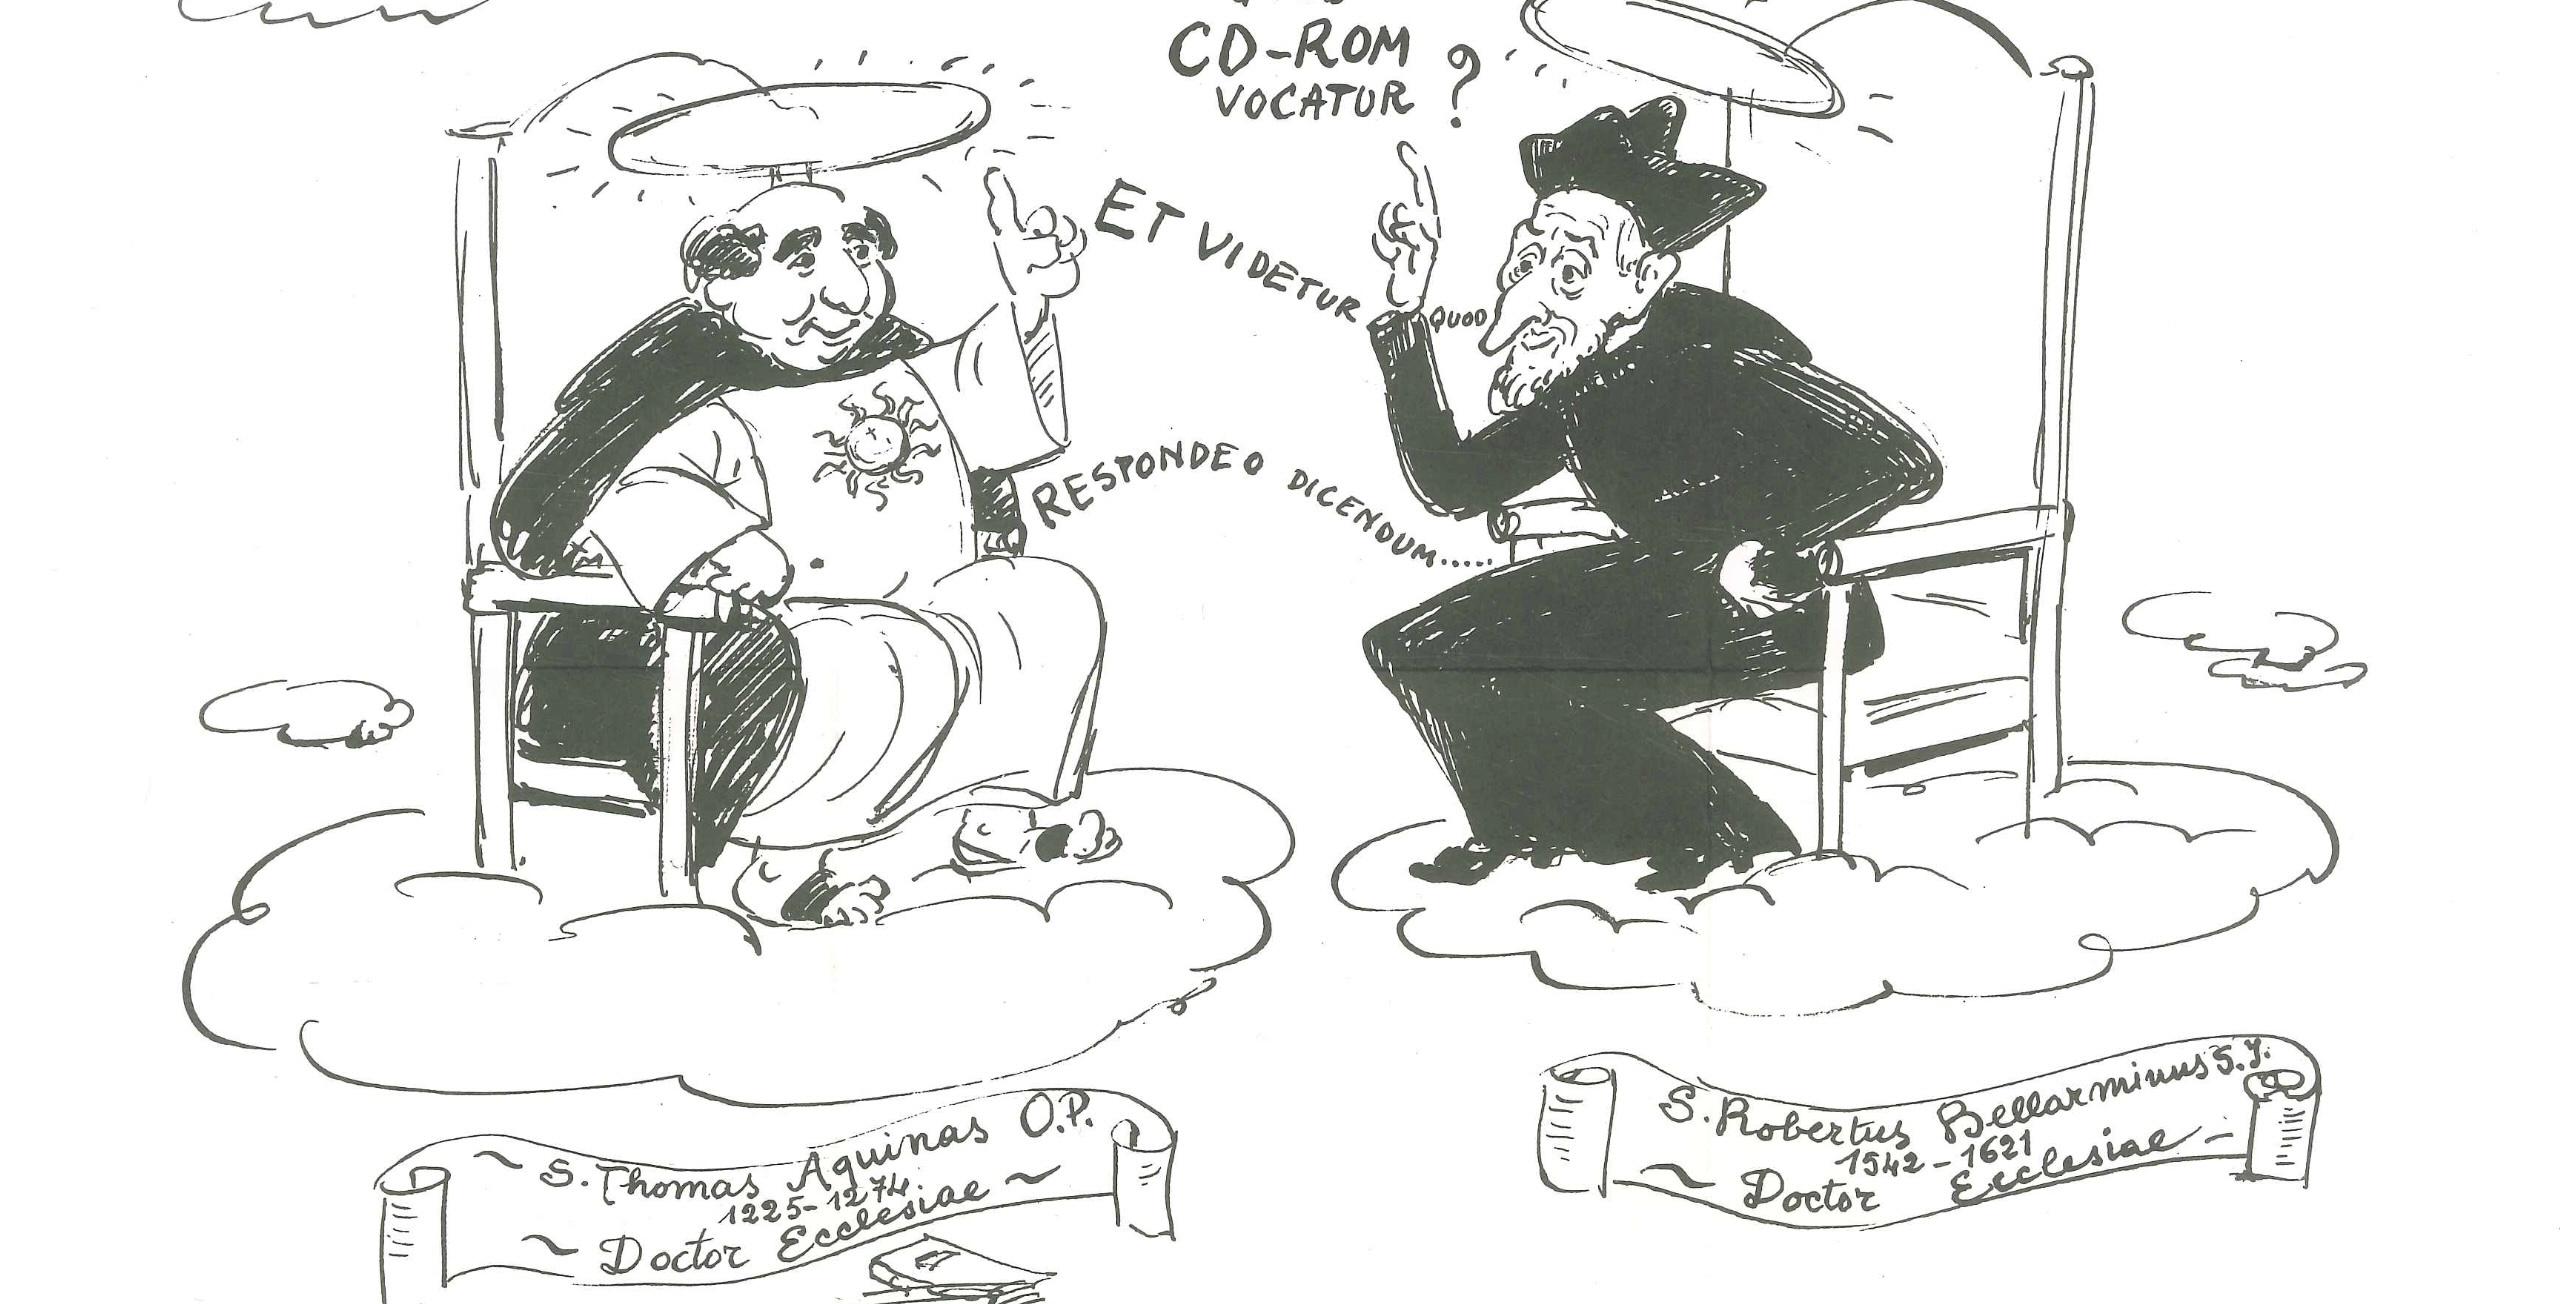 CD-ROM
VOCATUR ?
ET VIDETUR QUOD
RESPONDEO DICENDUM.....
S. Thomas Aquinas O.P.
1225-1274
~ Doctor Ecclesiae ~
S. Robertus Bellarminus S.J.
1542-1621
~ Doctor Ecclesiae ~